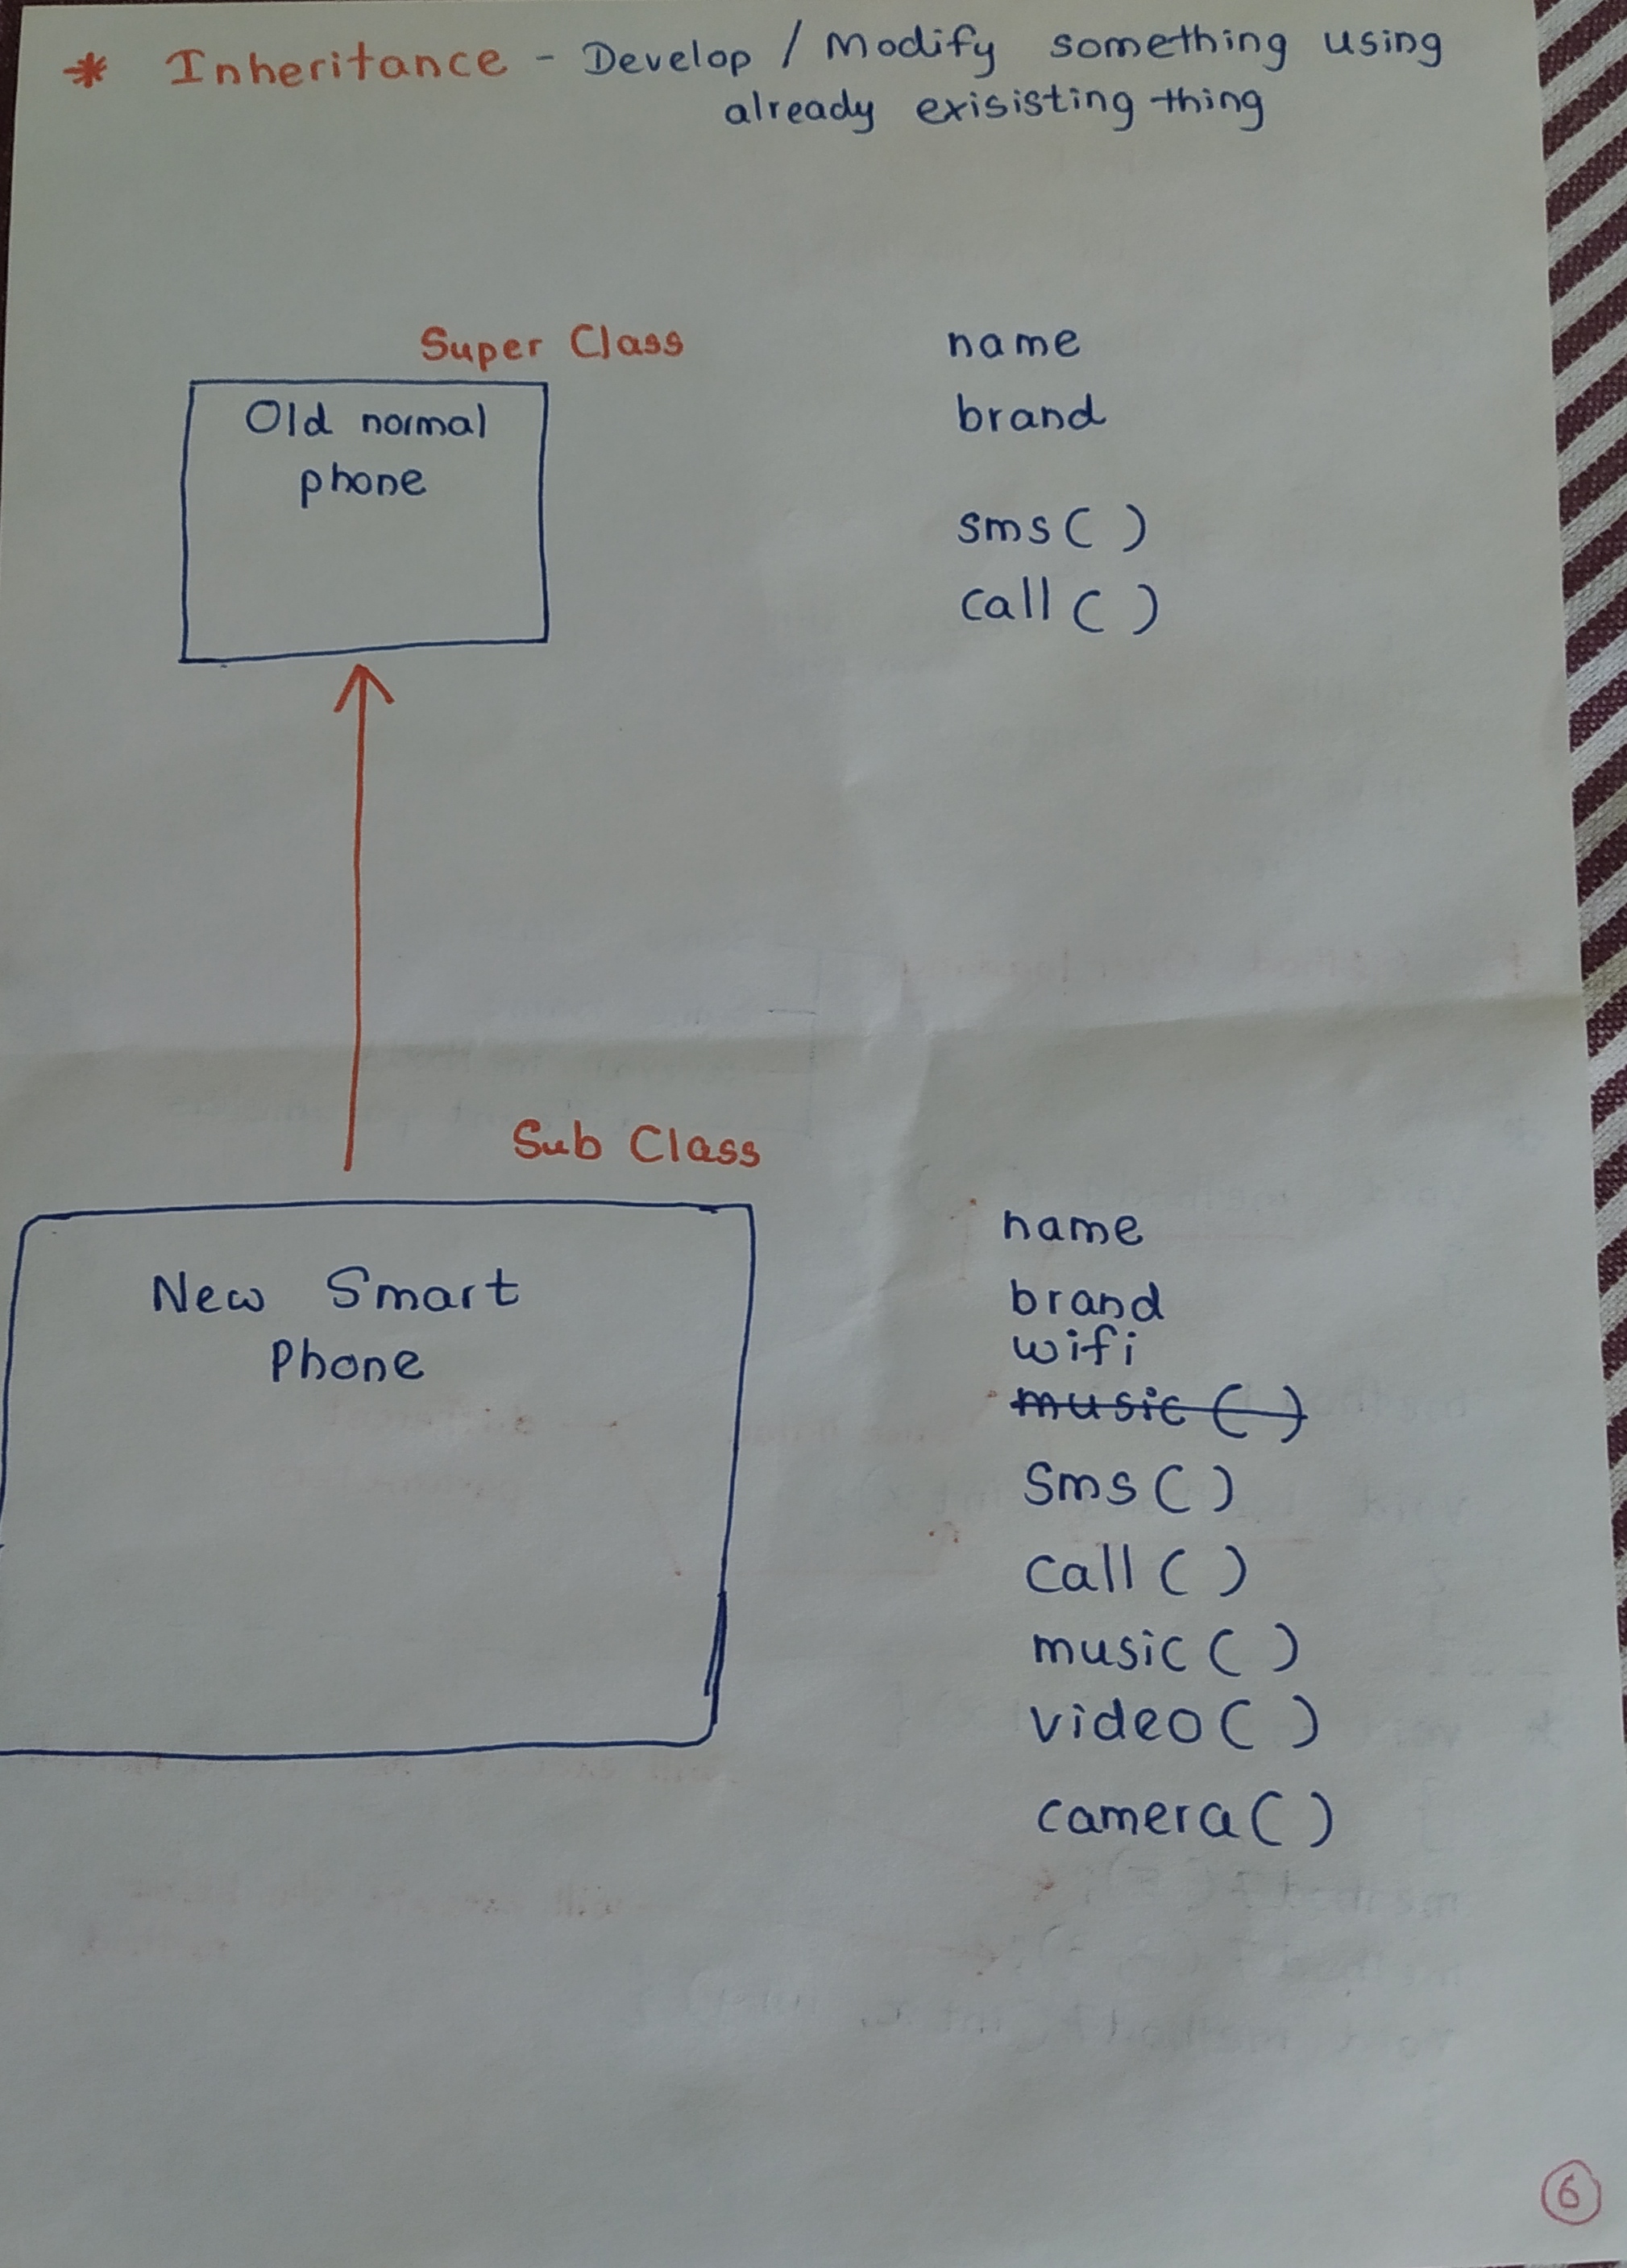 * Inheritance - Develop / Modify something using
already exisisting thing
Super Class
Old normal
phone
name
brand
sms ( )
call ( )
Sub Class
New Smart
Phone
name
brand
wifi
music ( )
Sms ( )
call ( )
music ( )
video ( )
camera ( )
6